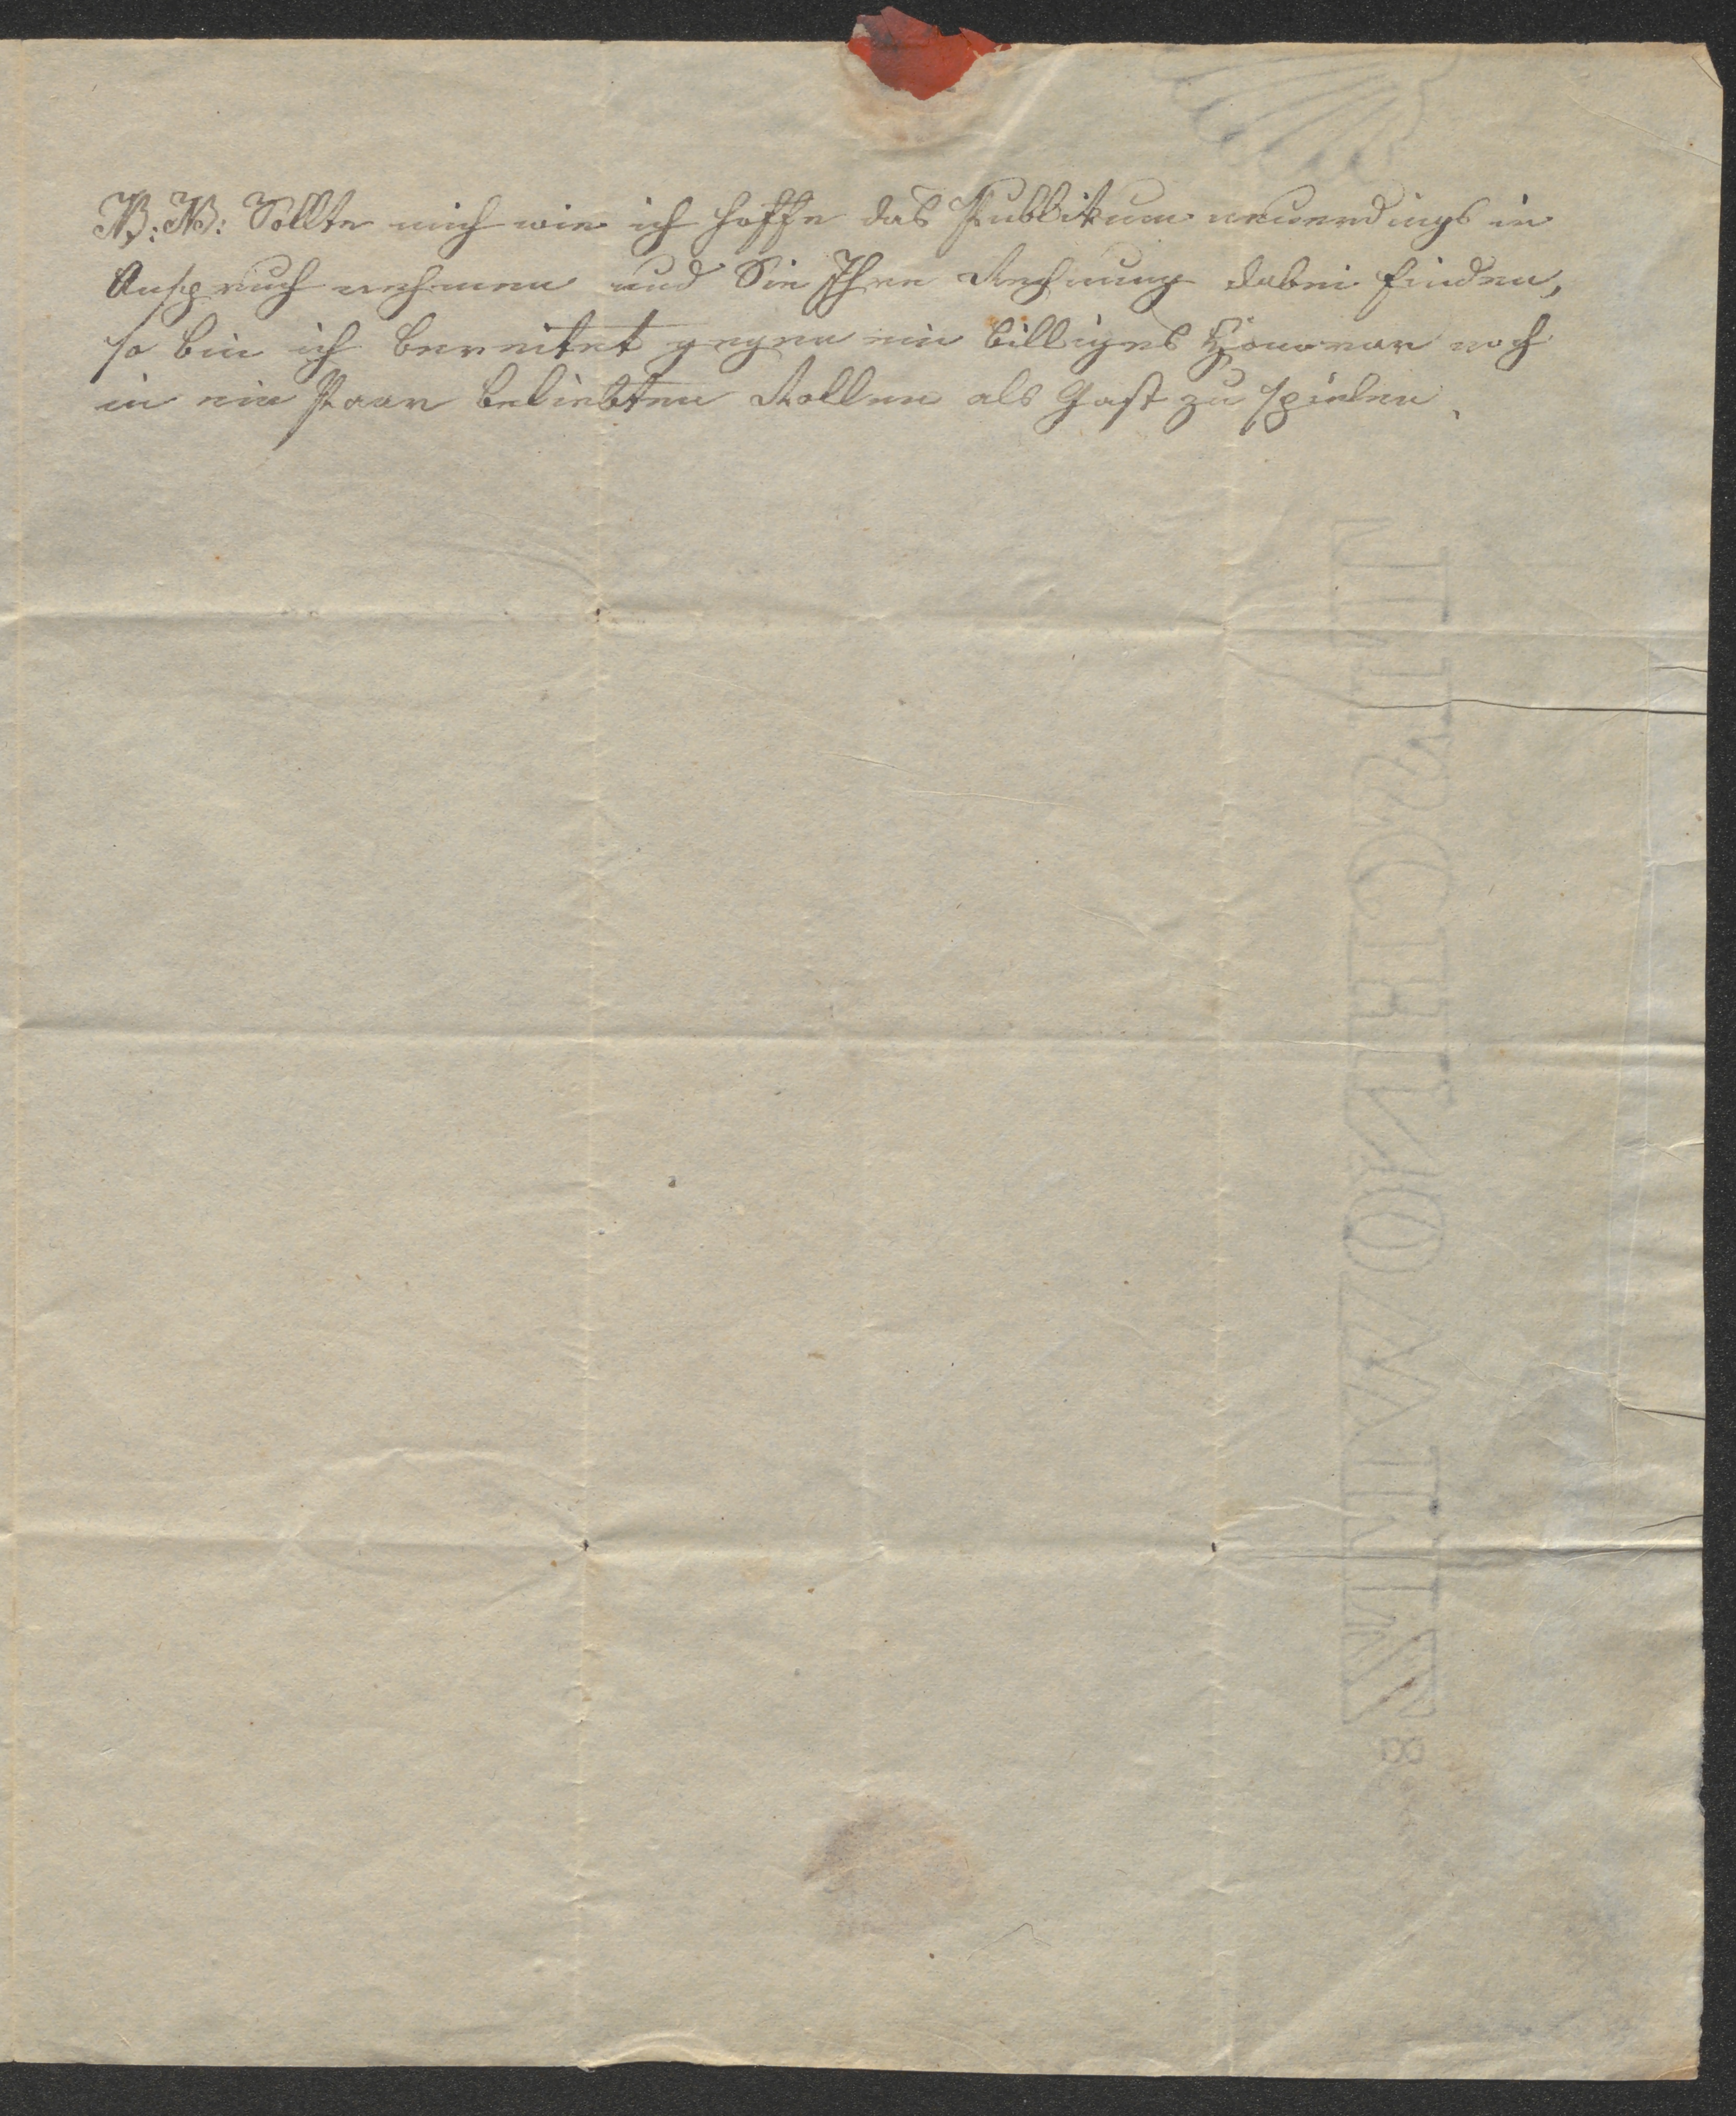 NB: NB: Sollte mich wie ich hoffe das Publikum neuerdings in
Anspruch nehmen und Sie Ihre Rechnung dabei finden,
so bin ich bereitet gegen ein billiges Honorar noch
in ein Paar beliebten Rollen als Gast zu spielen.